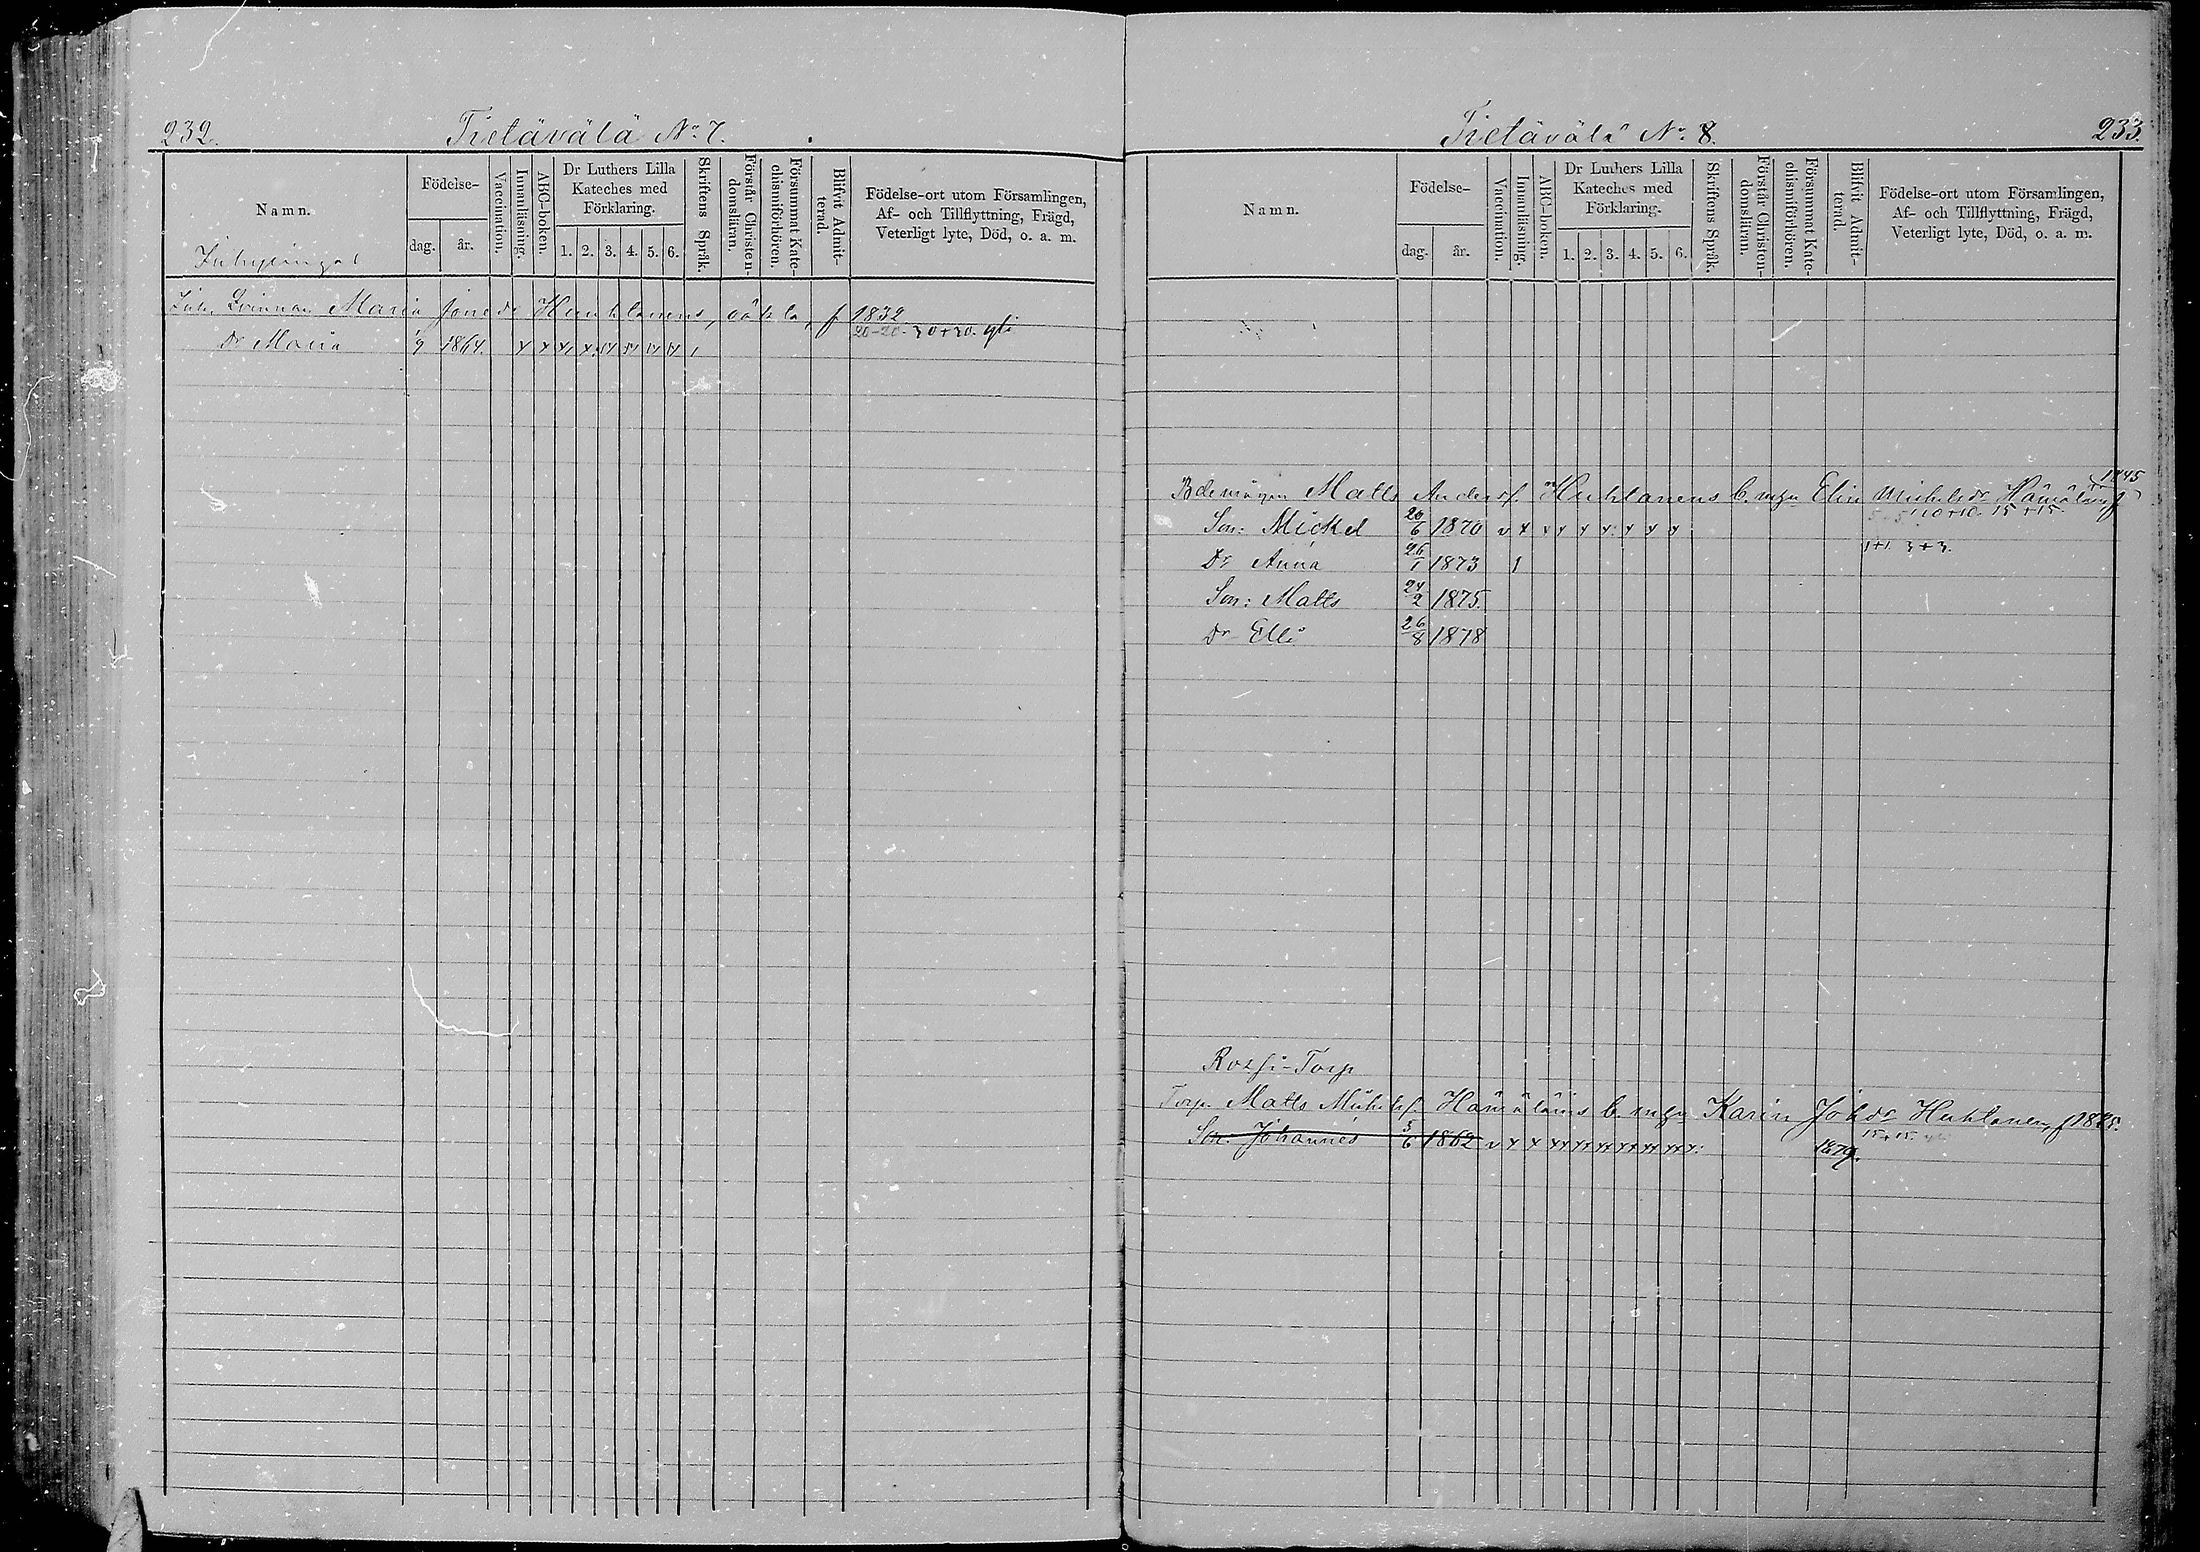 232.
Tietävälä No 7.
Namn.
Födelse-
dag.
år.
Vaccination.
Innanläsning.
ABC-boken.
Dr Luthers Lilla
Kateches med
Förklaring.
1. 2. 3. 4. 5. 6.
Skriftens Språk.
Förstår Christen-
domsläran.
Försummat Kate-
chismiförhören.
Blifvit Admit-
terad.
Födelse-ort utom Församlingen,
Af- och Tillflyttning, Frägd,
Veterligt lyte, Död, o. a. m.
Qvinnan Maria Jonsdr Huuhtanens, f 1832
20-20. 30+30.
Dr Maria 9 1864.
Tietävälä No 8.
233.
Namn.
Födelse-
dag.
år.
Vaccination.
Innanläsning.
ABC-boken.
Dr Luthers Lilla
Kateches med
Förklaring.
1. 2. 3. 4. 5. 6.
Skriftens Språk.
Förstår Christen-
domsläran.
Försummat Kate-
chismiförhören.
Blifvit Admit-
terad.
Födelse-ort utom Församlingen,
Af- och Tillflyttning, Frägd,
Veterligt lyte, Död, o. a. m.
1845
Matts Andersf. Huhtanens b. mgn Elin Michelsdr
10+10. 15+15.
Son: Mickel 20/6 1870
1+1. 3+3.
Dr Anna 26/1 1873
Son: Matts 24/2 1875.
Dr Elli 26/8 1878
Torp
Torp. Matts Michelsf. Hämäläins b. mgn Karin Johdr Huhtanen,
15+15.
Son: Johannes 3/6 1862
1879.